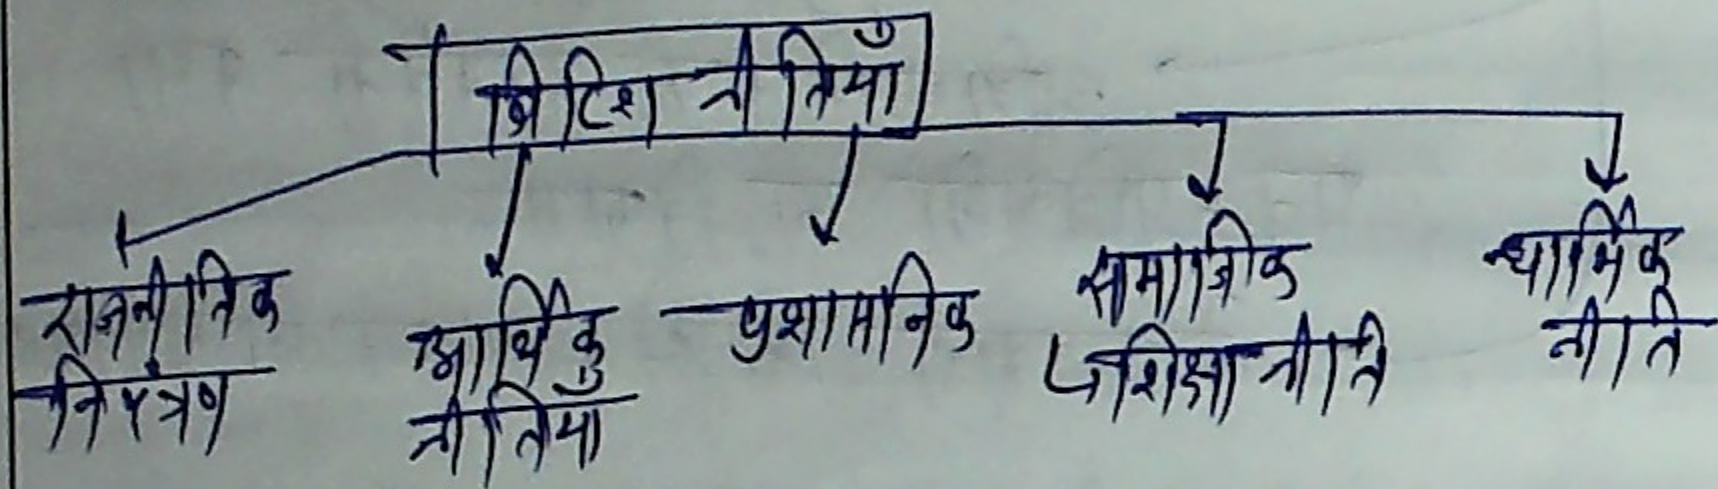 ब्रिटिश नीतियाँ
राजनीतिक
नियंत्रण
आर्थिक
नीतियाँ
प्रशासनिक
सामाजिक
शिक्षा नीति
धार्मिक
नीति